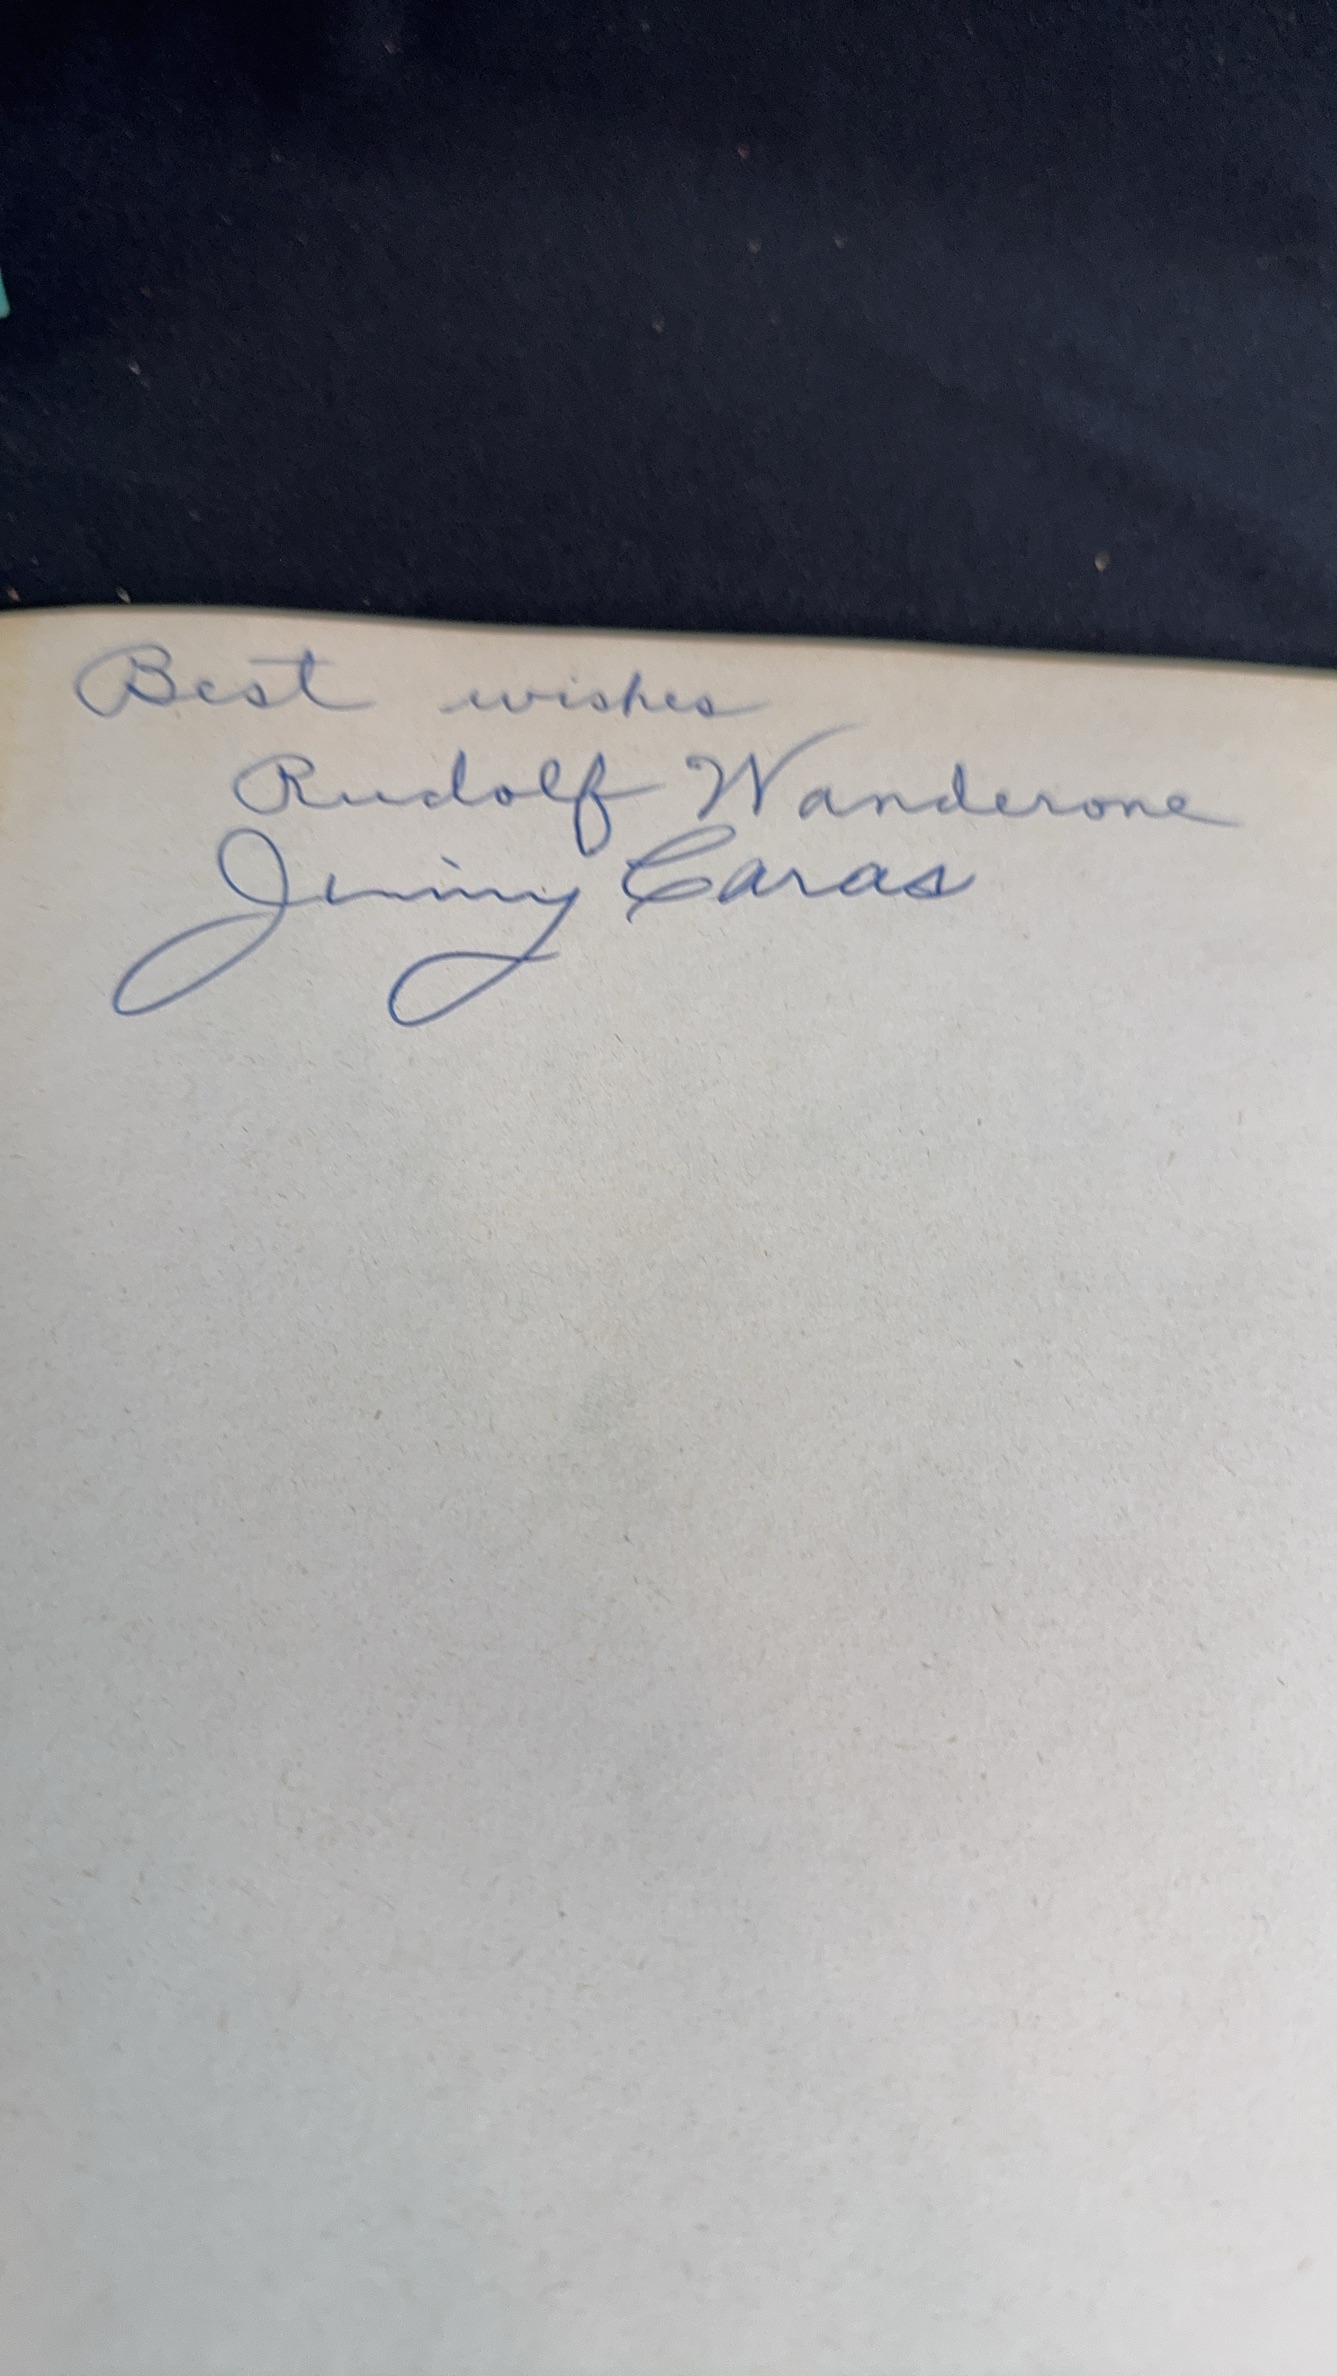 Best wishes
Rudolf Wanderone
Jimmy Caras